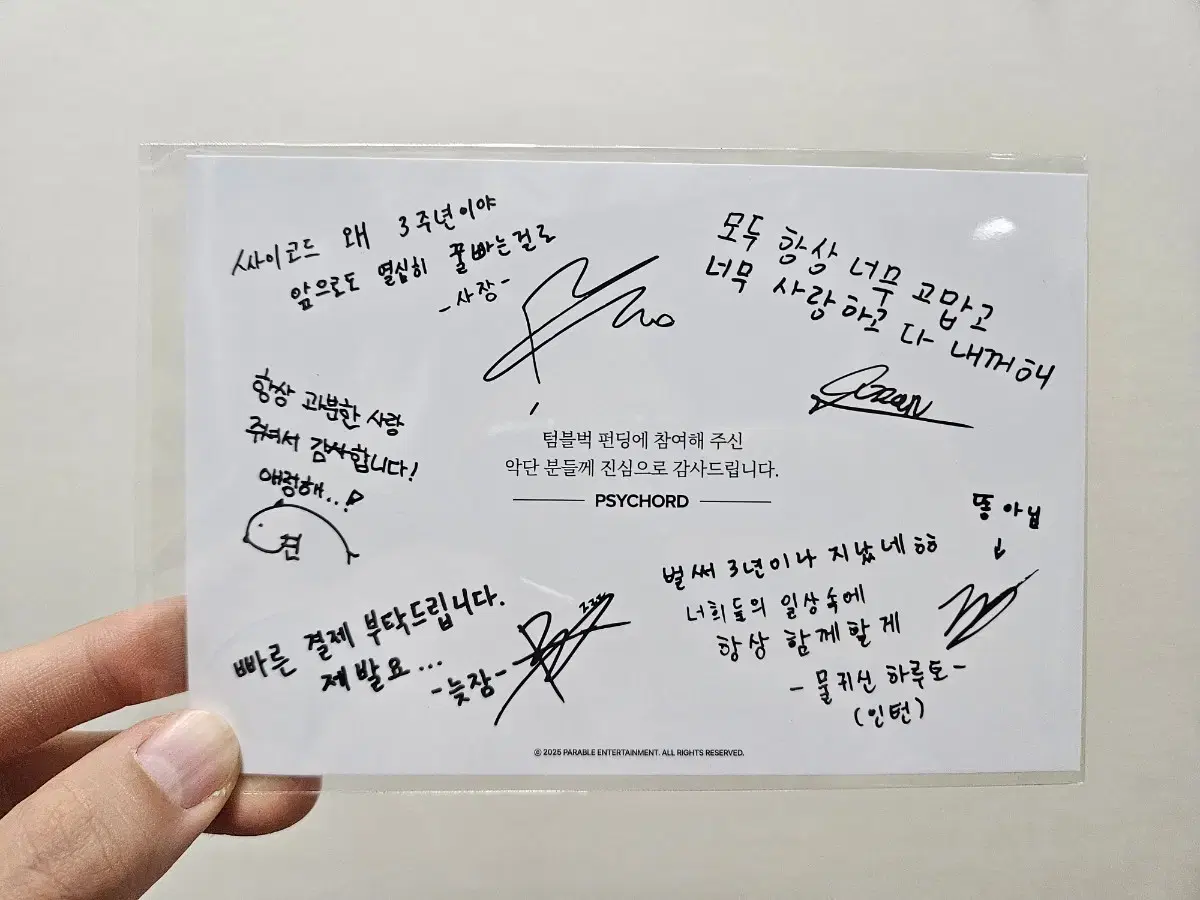 싸이코드 왜 3주년이야
앞으로도 열심히 꿀빠는걸로
-사장-
모두 항상 너무 고맙고
너무 사랑하고 다 내꺼해
항상 과분한 사랑
줘서 감사합니다!
애정해..!
견
텀블벅 펀딩에 참여해 주신
악단 분들께 진심으로 감사드립니다.
PSYCHORD
똥 아님
↓
벌써 3년이나 지났네 ㅎㅎ
너희들의 일상속에
항상 함께할게
-물귀신 하루토-
(인턴)
빠른 결제 부탁드립니다.
제발요...
-늦잠-
zzz
ⓒ 2025 PARABLE ENTERTAINMENT. ALL RIGHTS RESERVED.